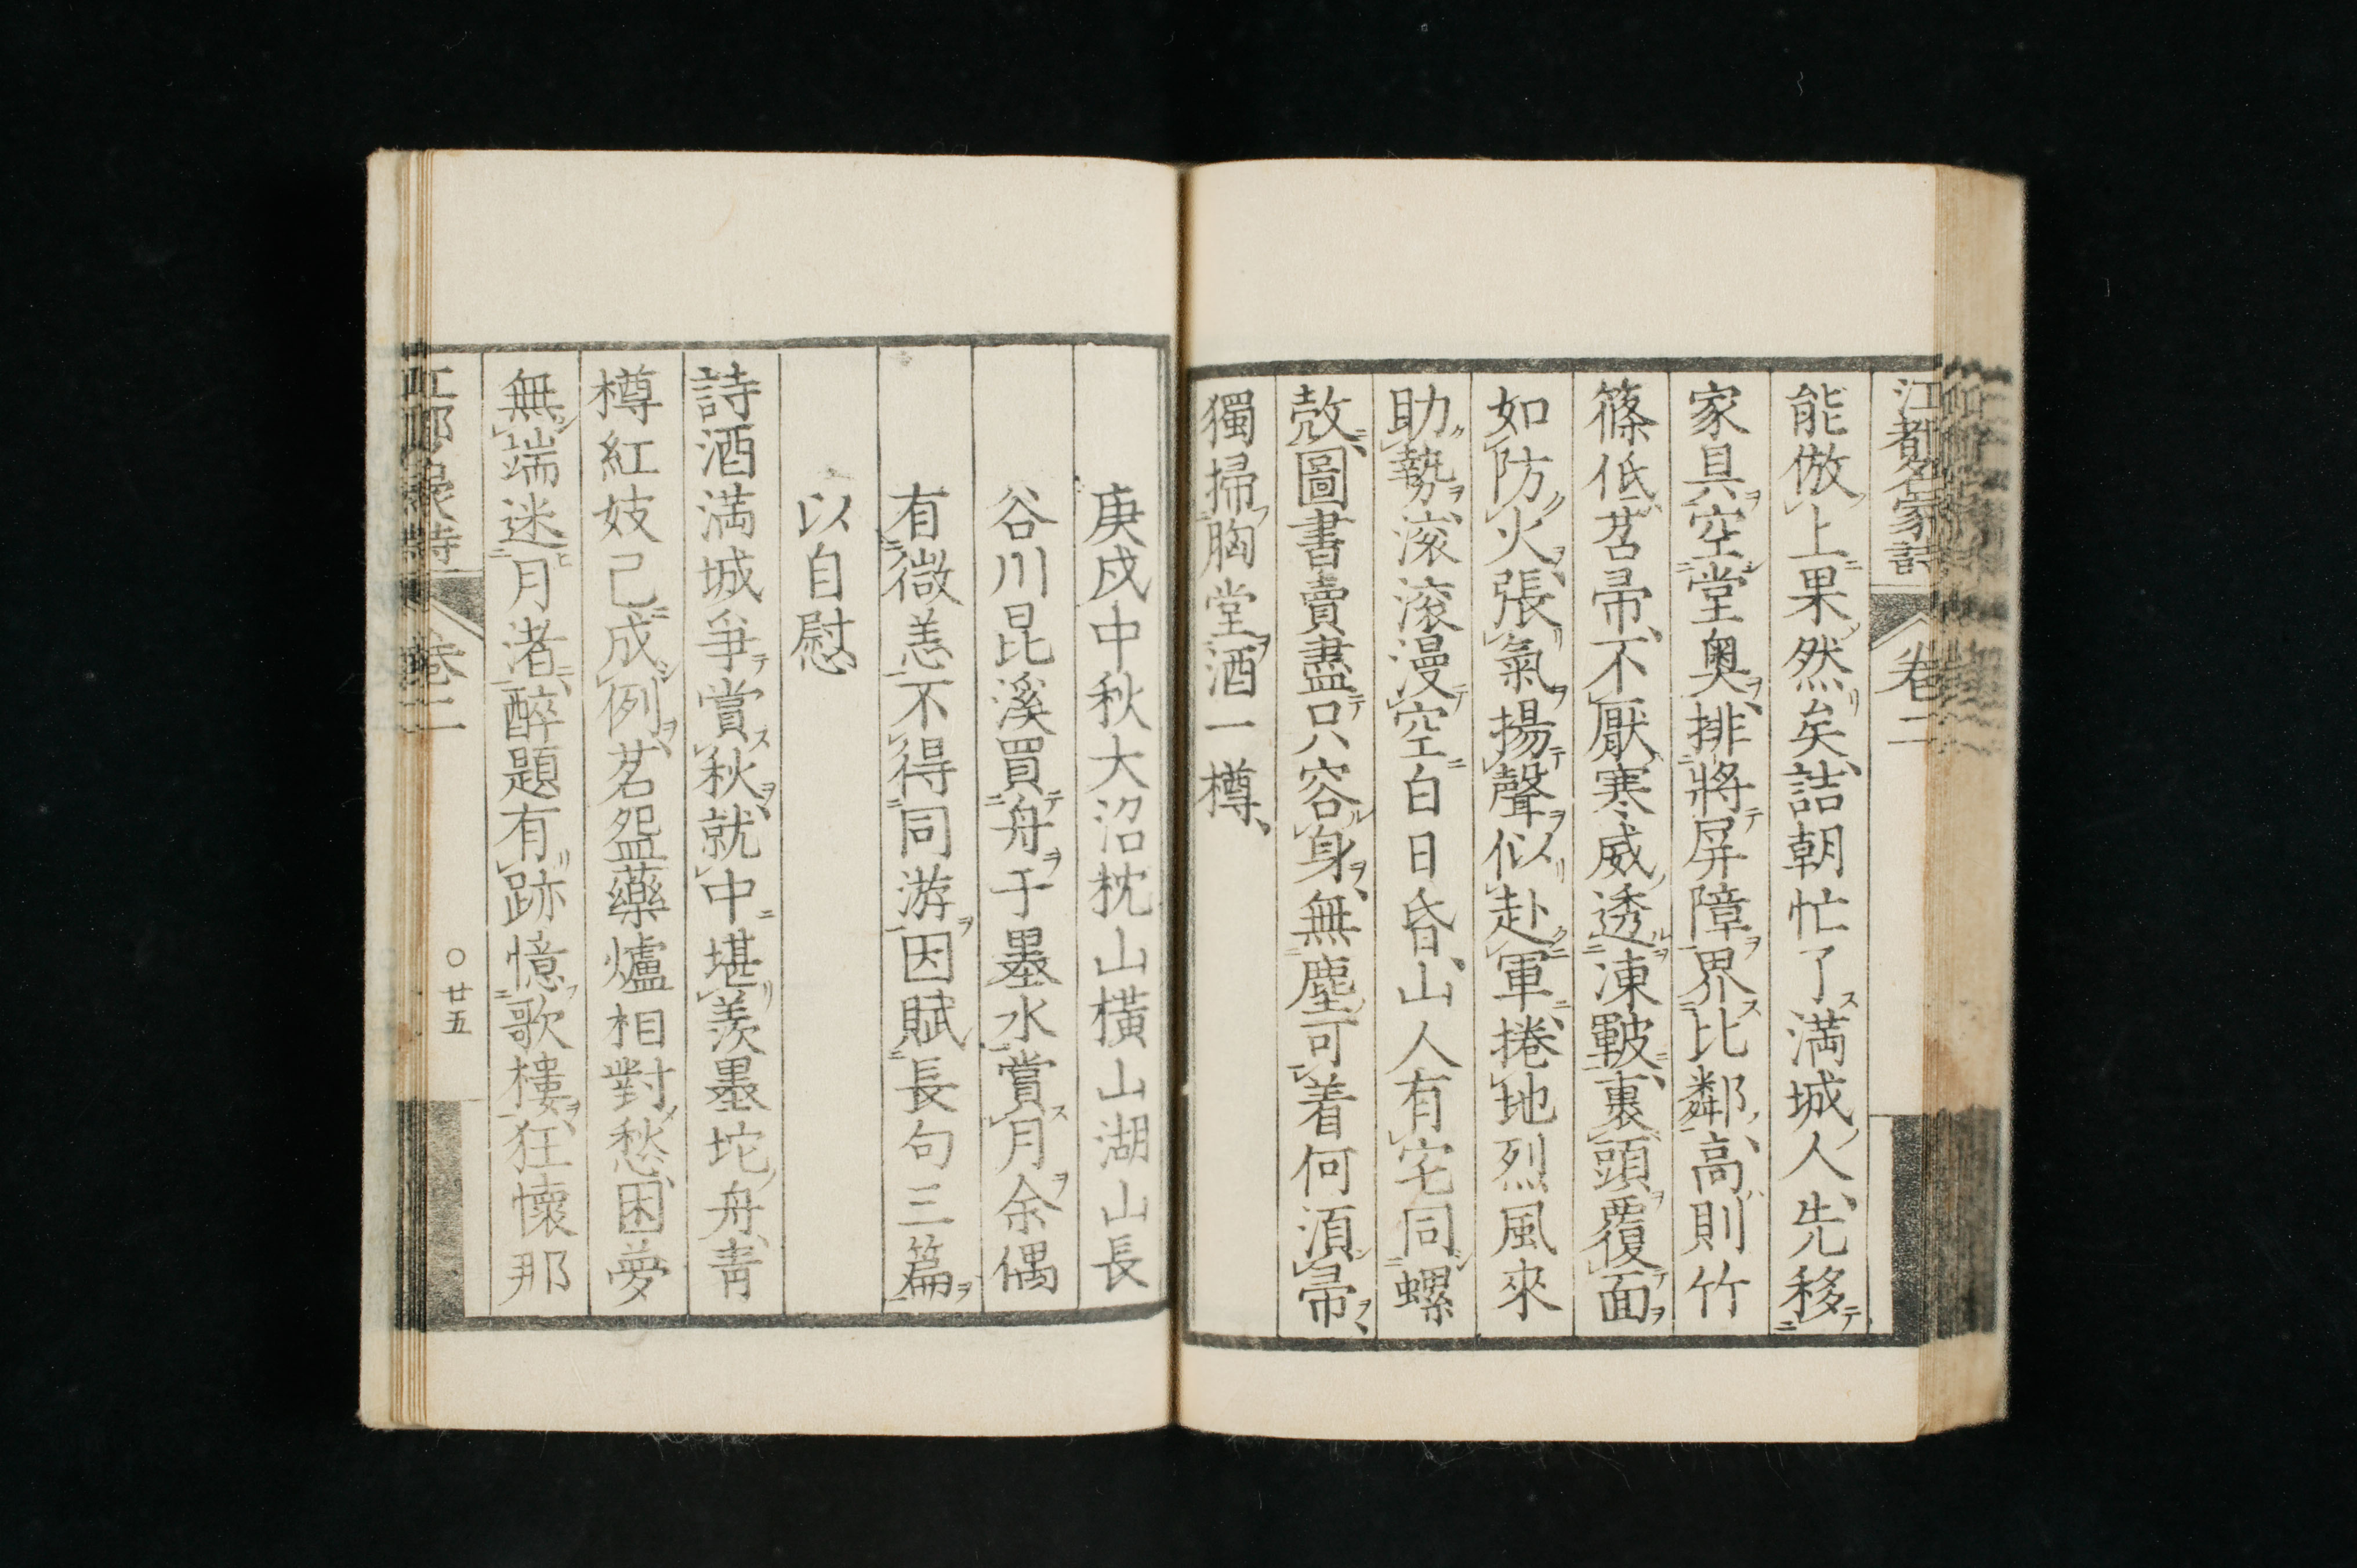 江都名家詩 卷二
能倣上果然矣詰朝忙了満城人先移
家具空堂奥排將屏障界比鄰高則竹
篠低苕帚不厭寒威透凍皸裏頭覆面
如防火張氣揚聲似赴軍捲地烈風來
助勢滚滚漫空白日昏山人有宅同螺
殼圖書賣盡只容身無塵可着何湏帚
獨掃胸堂酒一樽
庚戌中秋大沼枕山横山湖山長
谷川昆溪買舟于墨水賞月余偶
有微恙不得同游因賦長句三篇
以自慰
詩酒満城爭賞秋就中堪羨墨坨舟青
樽紅妓已成例茗盌藥爐相對愁困夢
無端迷月渚醉題有跡憶歌樓狂懷那
卷二
〇廿五